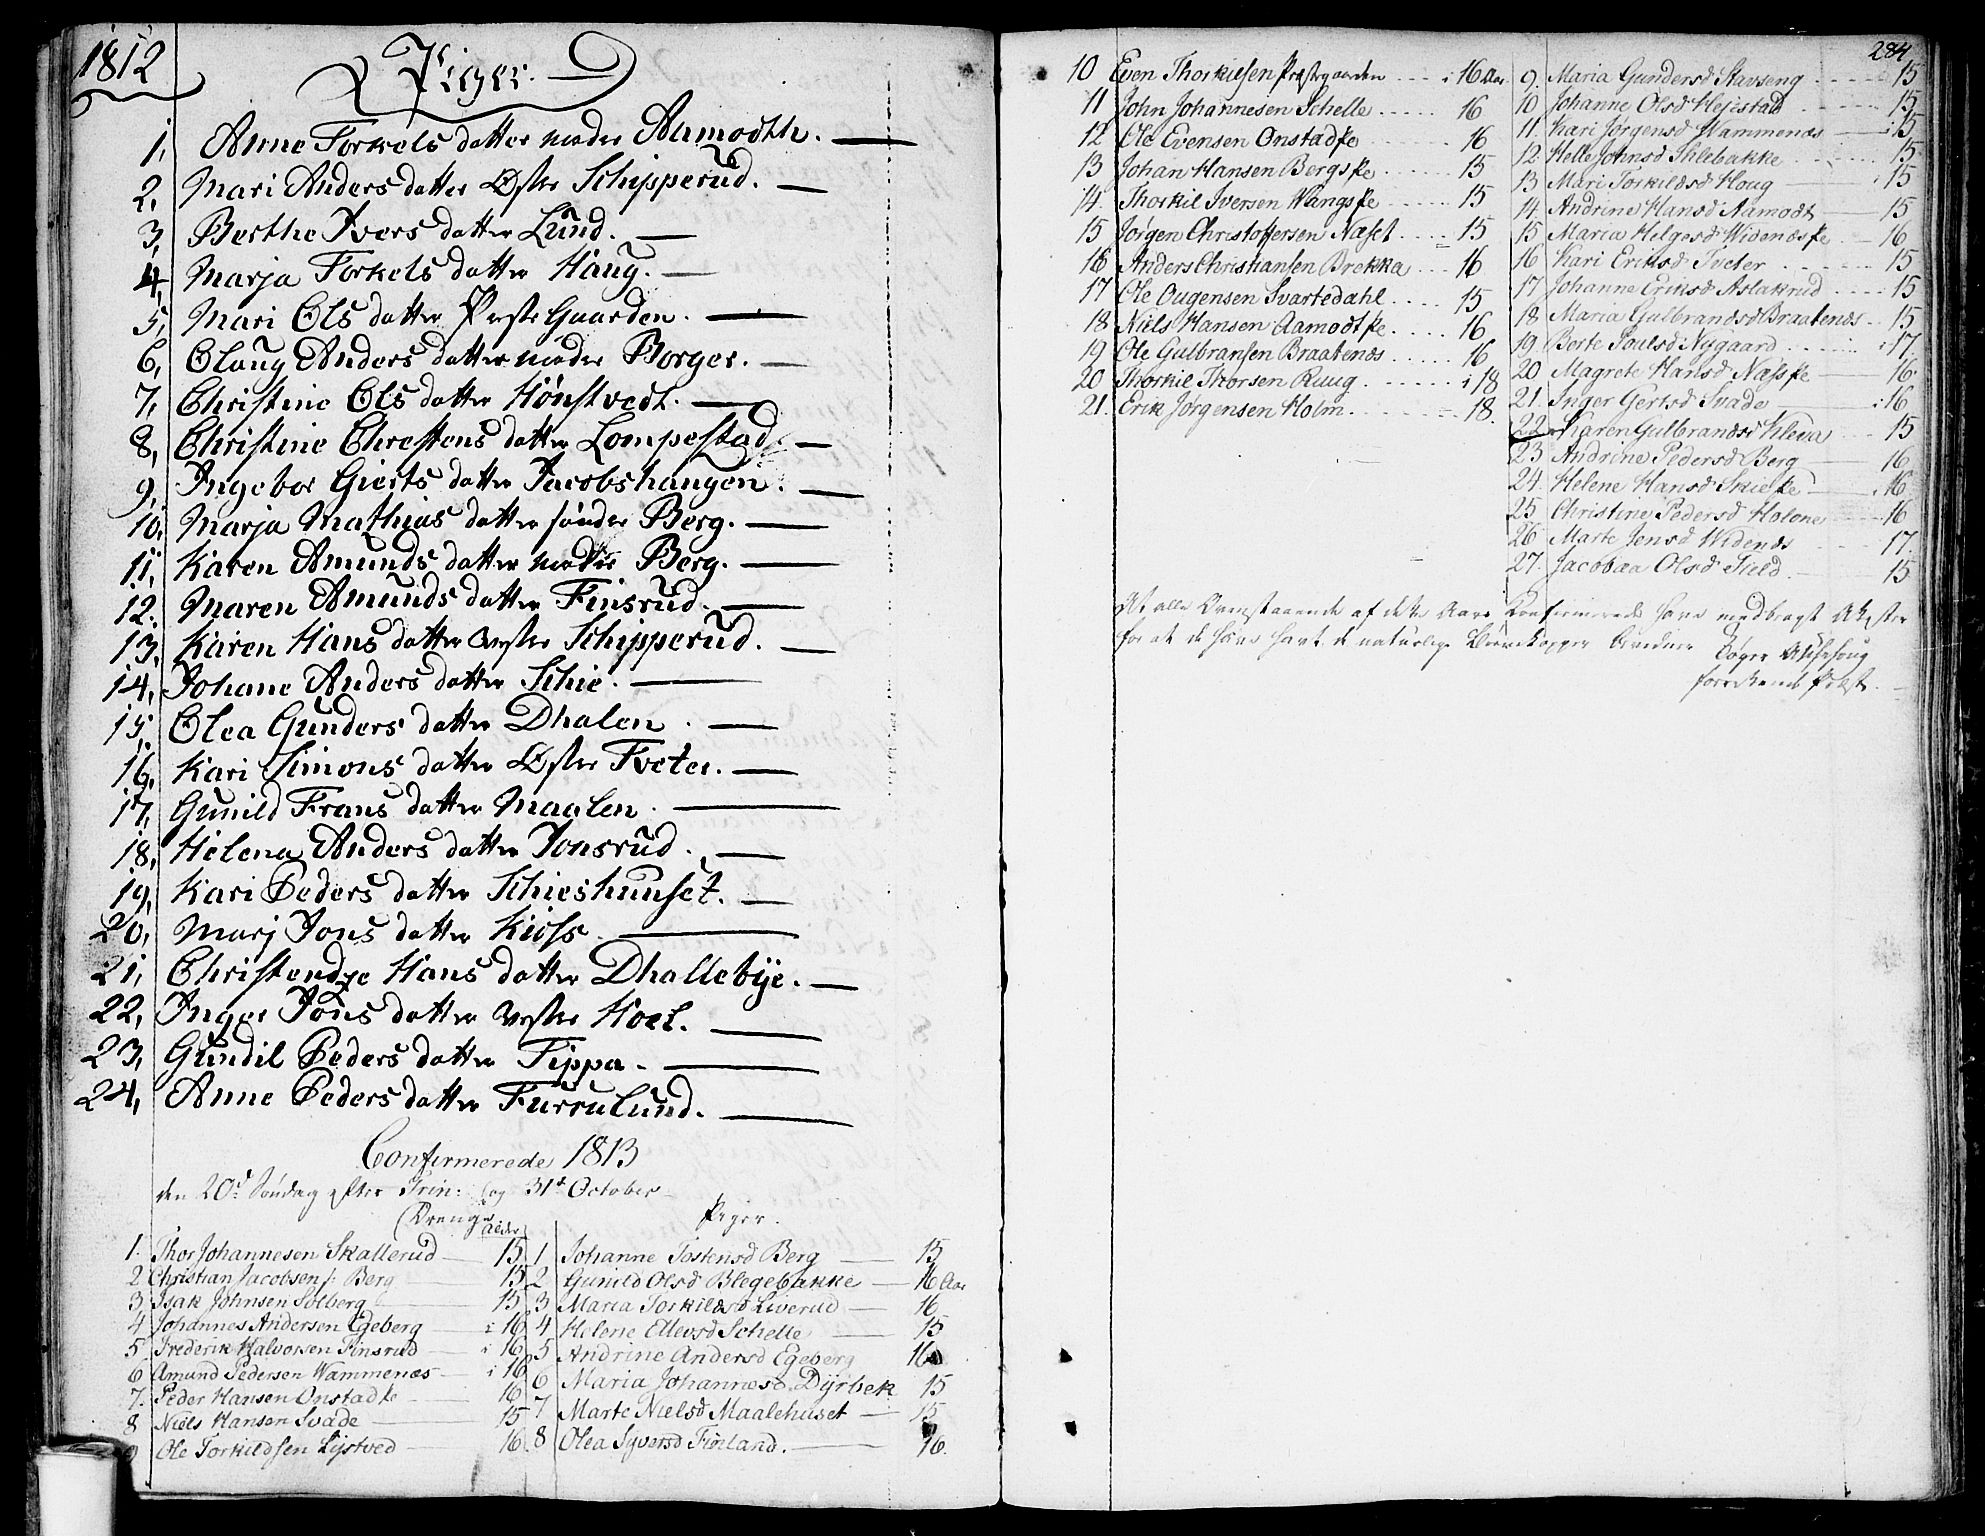 1812
Piger.
1, Anne Torkels datter nædre Aamodth.
2, Mari Anders datter Øster Schipperud.
3, Berthe Ivers datter Lund.
4, Marja Torkels datter Haug.
5, Mari Ols datter Præste Gaarden.
6, Olaug Anders datter nædre Borger.
7, Christine Ols datter Hönstvedt.
8, Christine Chrestens datter Lompestad
9, Ingebor Gierts datter Jacobshaugen.
10, Marja Mathias datter søndre Berg.
11, Karen Amunds datter nædre Berg.
12, Maren Amunds datter Finsrud.
13, Karen Hans datter Vester Schipperud.
14, Johane Anders datter Schie.
15, Olea Gunders datter Dhalen.
16, Kari Simons datter Øster Tveter.
17, Gunild Frans datter Maalen.
18, Helena Anders datter Jonsrud.
19, Kari Peders datter Schieshuuset.
20, Marj Jons datter Kioss.
21, Christendze Hans datter Dhallebÿe.
22, Inger Jons datter Vester Hoel.
23, Gundil Peders datter Tippa.
24, Anne Peders datter Furrulund.
Confirmerede 1813
den 20d Søndag efter Trin: (og 31t October
Drenge Alder
1. Thor Johannesen Skallerud 15
2 Christian Jacobsen s: Berg 15
3 Isak Johnsen Solberg 15
4 Johannes Andersen Egeberg i 16
5 Frederik Halvorsen Finsrud i 16
6 Amund Pedersen Wammenæs i 16
7. Peder Hansen Onstadke 16
8 Niels Hansen Svade 15
9 Ole Torkildsen Lystved 16
Piger.
1 Johanne Tostensd Berg 15
2 Gunild Olsd Blegebakke 16 Aar
3 Maria Torkildsd Liverud 16
4 Helene Ellevsd Schelle 15
5 Andrine Andersd Egeberg 16
6 Maria Johannesd Dyrbek 15
7 Marte Nielsd Maalehuset 15
8 Olea Syversd Finland. 16.
284
10 Even Thorkielsen Præstegaarden i 16 Aar
11 John Johannesen Schelle 16
12 Ole Evensen Onstadke 16
13 Johan Hansen Bergske 15
14. Thorkil Iversen Wangske 15
15 Jørgen Christoffersen Næset 15
16 Anders Christiansen Brekka 16
17 Ole Ougensen Svartedahl 15
18 Niels Hansen Aamodtke 16
19 Ole Gulbransen Braatenæs 16
20 Thorkil Thorsen Ruug i 18
21. Erik Jørgensen Holm 18.
9. Maria Gundersd Stavseng 15
10 Johanne Olsd Hejestad 15
11. Kari Jørgensd Wammenæs i 15
12. Helle Johnsd Shlebakke 15
13 Mari Torkildsd Houg 15
14 Andrine Hansd Aamodt 15
15 Maria Helgesd Widenæske 16
16 Kari Eriksd Tveter 15
17 Johanne Eriksd Aslakrud 15
18 Maria Gulbrandsd Braatenæs 15
19. Borte Poulsd Nygaard i 17
20 Magrete Hansd Næsske 16
21. Inger Gertsd Svade i 16
22 Karen Gulbrandsd Kleva 15
23 Andrine Pedersd Berg 16
24. Helene Hansd Skieke i 16
25 Christine Pedersd Holene 16
26 Marte Jensd Widenæs 17.
27. Jacobaa Olsd Field 15
At alle Ovenstaaende af dette Aars Konfirmerede have medbragt Atester
for at de have havt de naturlige Børnekopper bevidner